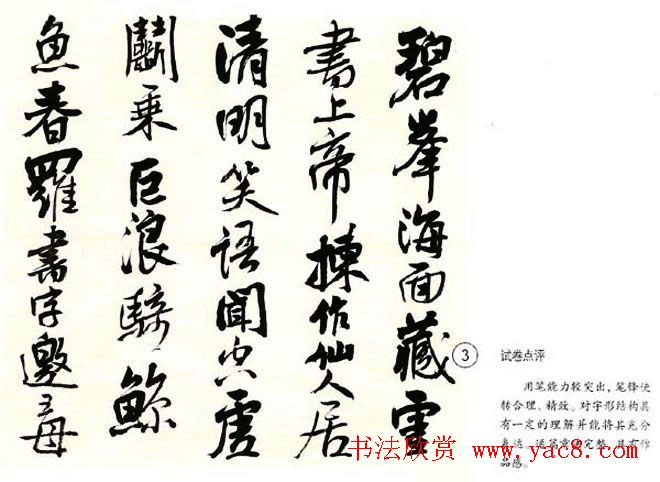 碧峯海面藏靈
書上帝揀作仙人居
清明笑語聞空虛
鬭乘巨浪騎鯨
魚春羅書字邀王母
③
试卷点评
用笔能力较突出，笔锋使
转合理、精致。对字形结构具
有一定的理解并能将其充分
表达。通篇章完整，具有作
品感。
书法欣赏 www.yac8.com